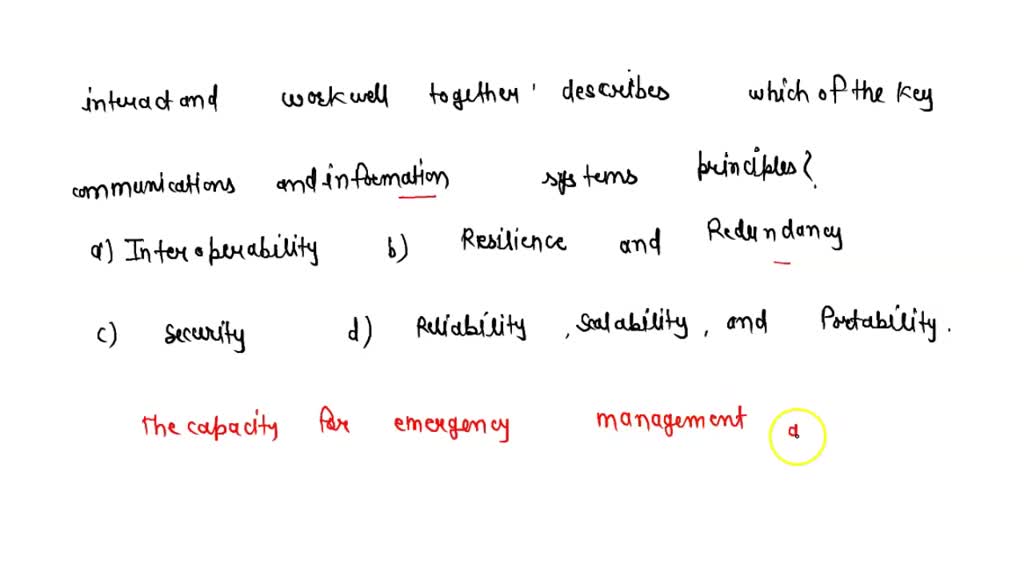 interact and work well together' describes which of the key
communications and information systems principles?
a) Interoperability b) Resilience and Redundancy
c) security d) Reliability, Scalability, and Portability.
The capacity for emergency management a